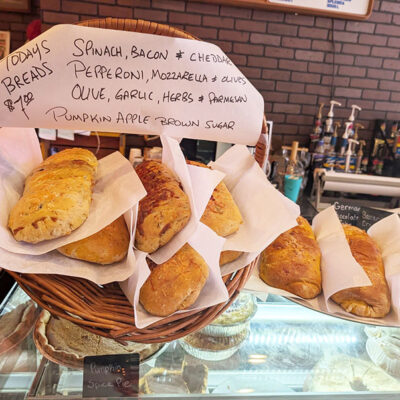 TODAYS
BREADS
$7.00
SPINACH, BACON & CHEDDAR
PEPPERONI, MOZZARELLA & OLIVES
OLIVE, GARLIC, HERBS & PARMESAN
PUMPKIN APPLE BROWN SUGAR
German
Chocolate
Pumpkin
Spice Pie